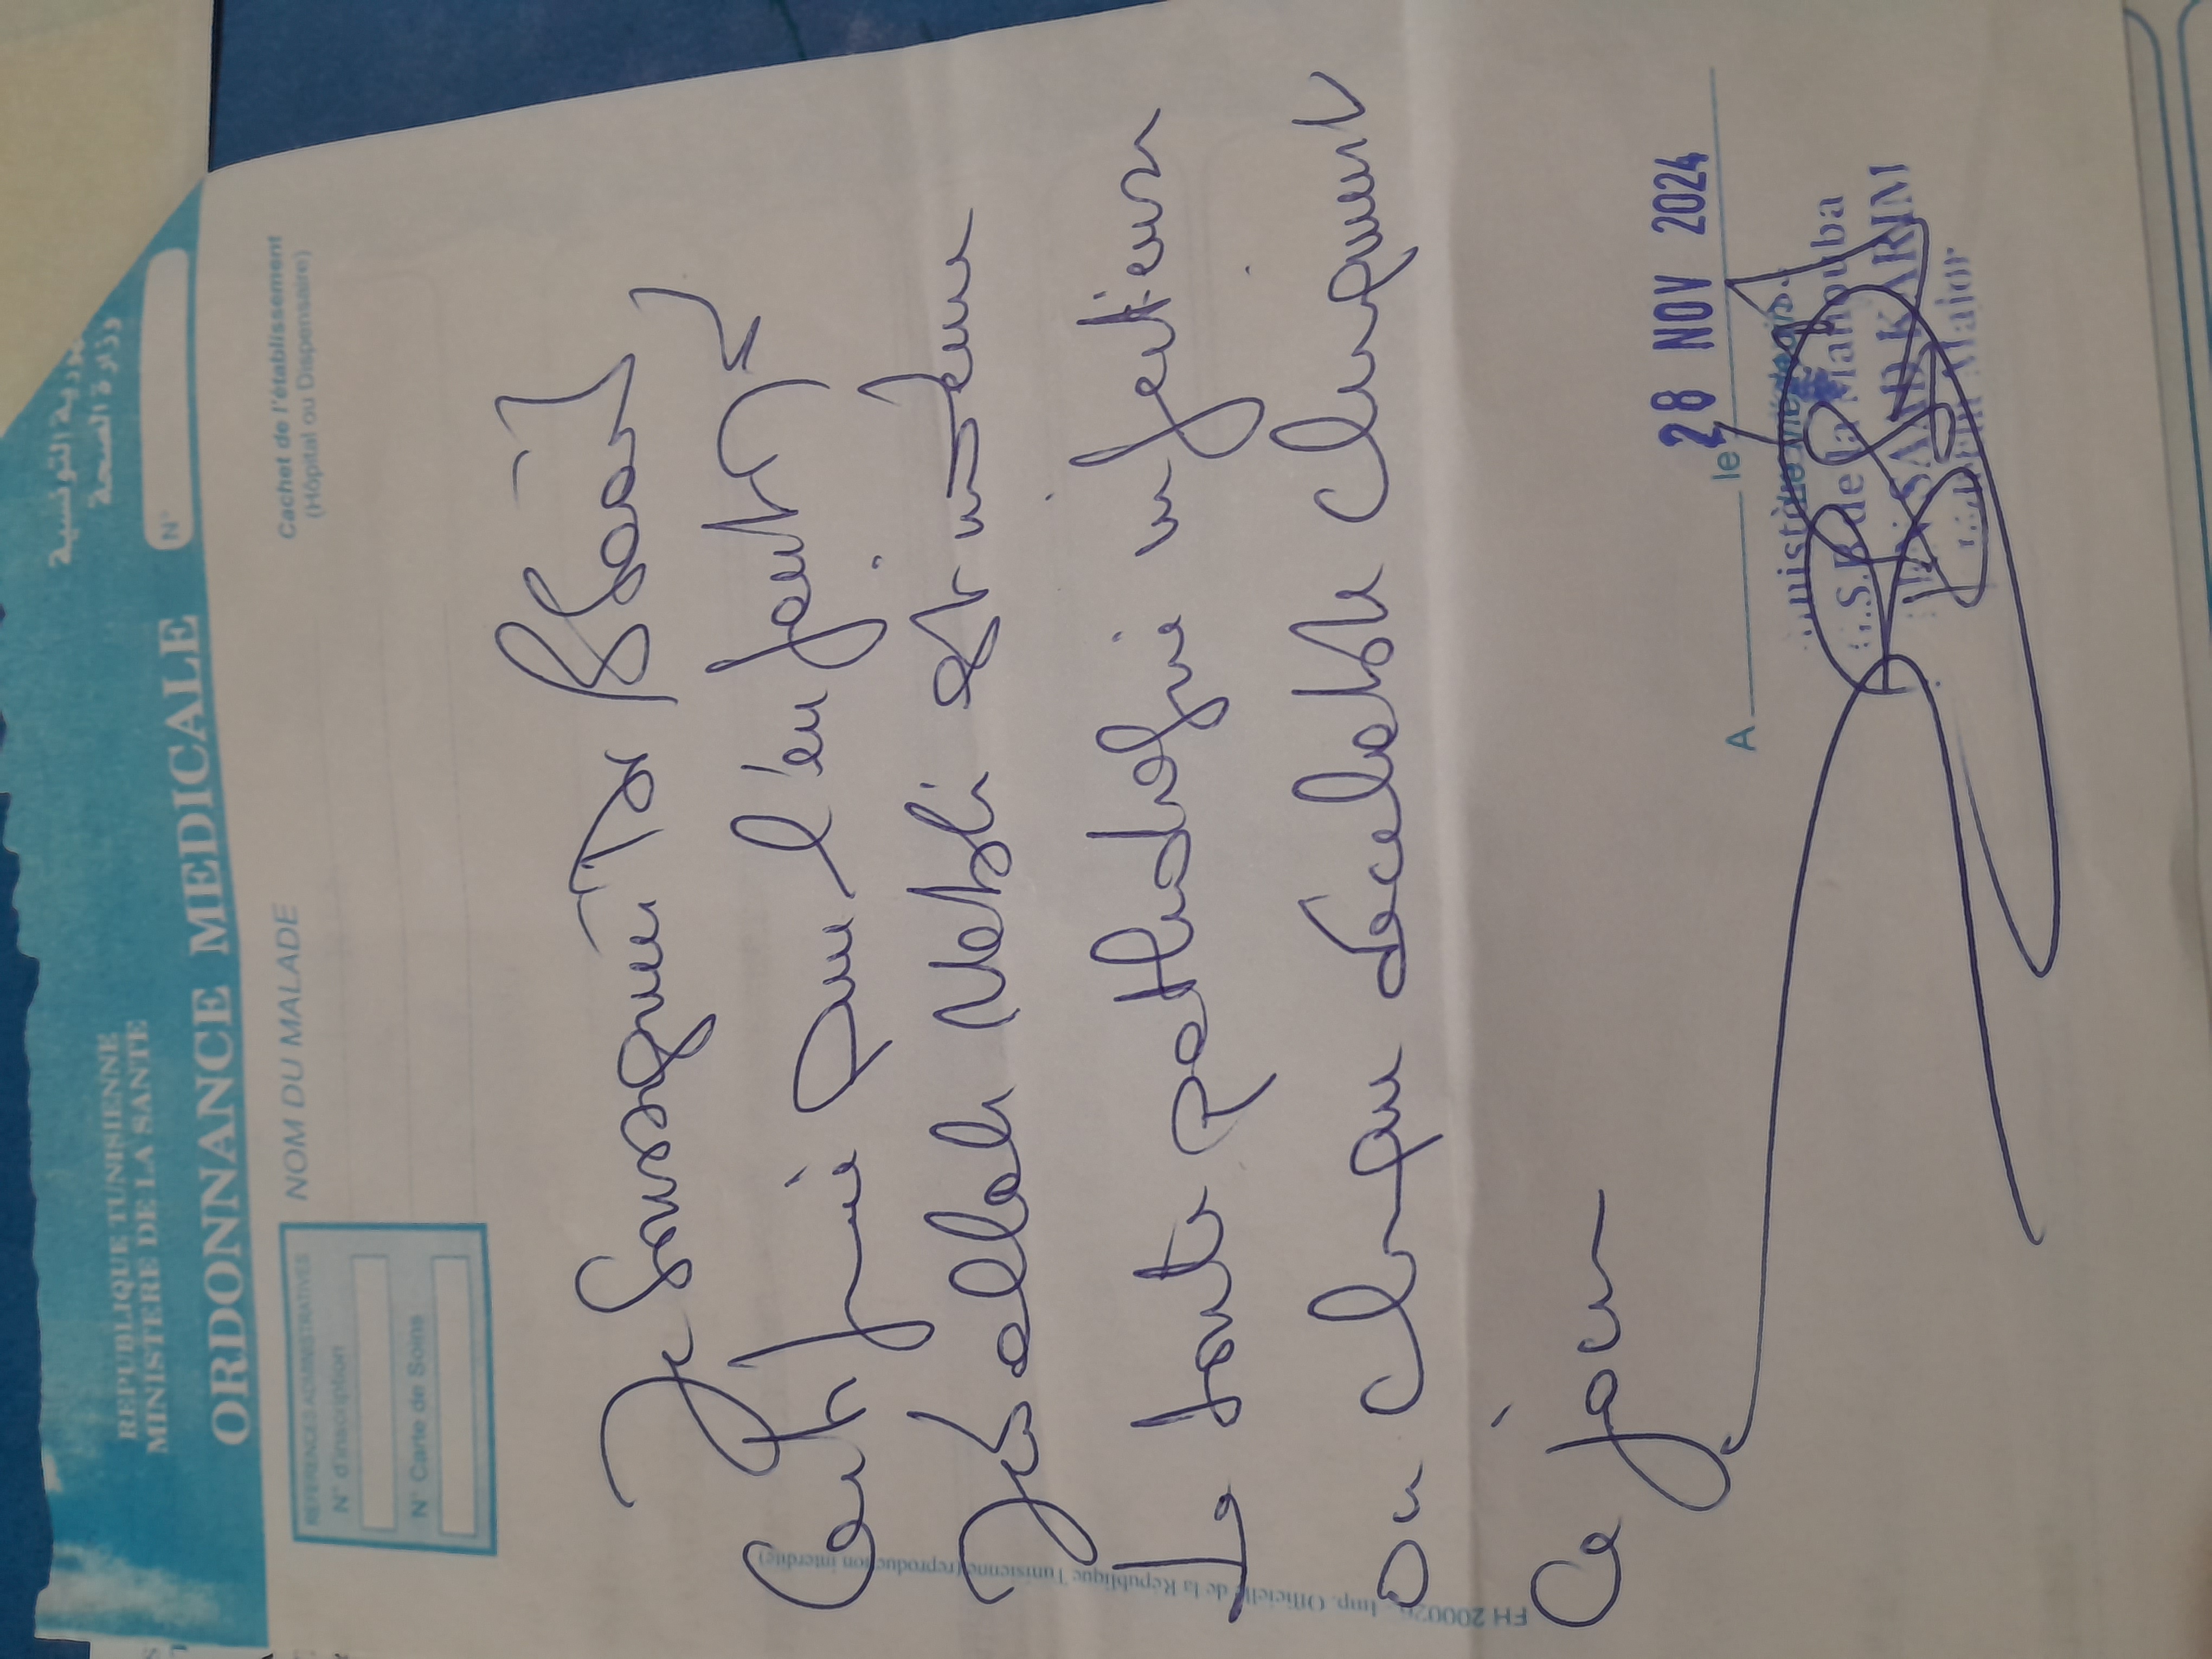 REPUBLIQUE TUNISIENNE
MINISTERE DE LA SANTE
الجمهورية التونسية
وزارة الصحة
ORDONNANCE MEDICALE
N°
REFERENCES ADMINISTRATIVES
N° d'inscription
N° Carte de Soins
NOM DU MALADE
Cachet de l'établissement
(Hôpital ou Dispensaire)
Je soussigné Dr
Certifie que l'enfant
Nebli est indemne
de toute pathologie infectieuse
ou chronique décelable cliniquement
Ce jour
A le 28 NOV 2024
de la Manouba
KARIM
Major
FH 200026 - Imp. Officielle de la République Tunisienne (reproduction interdite)